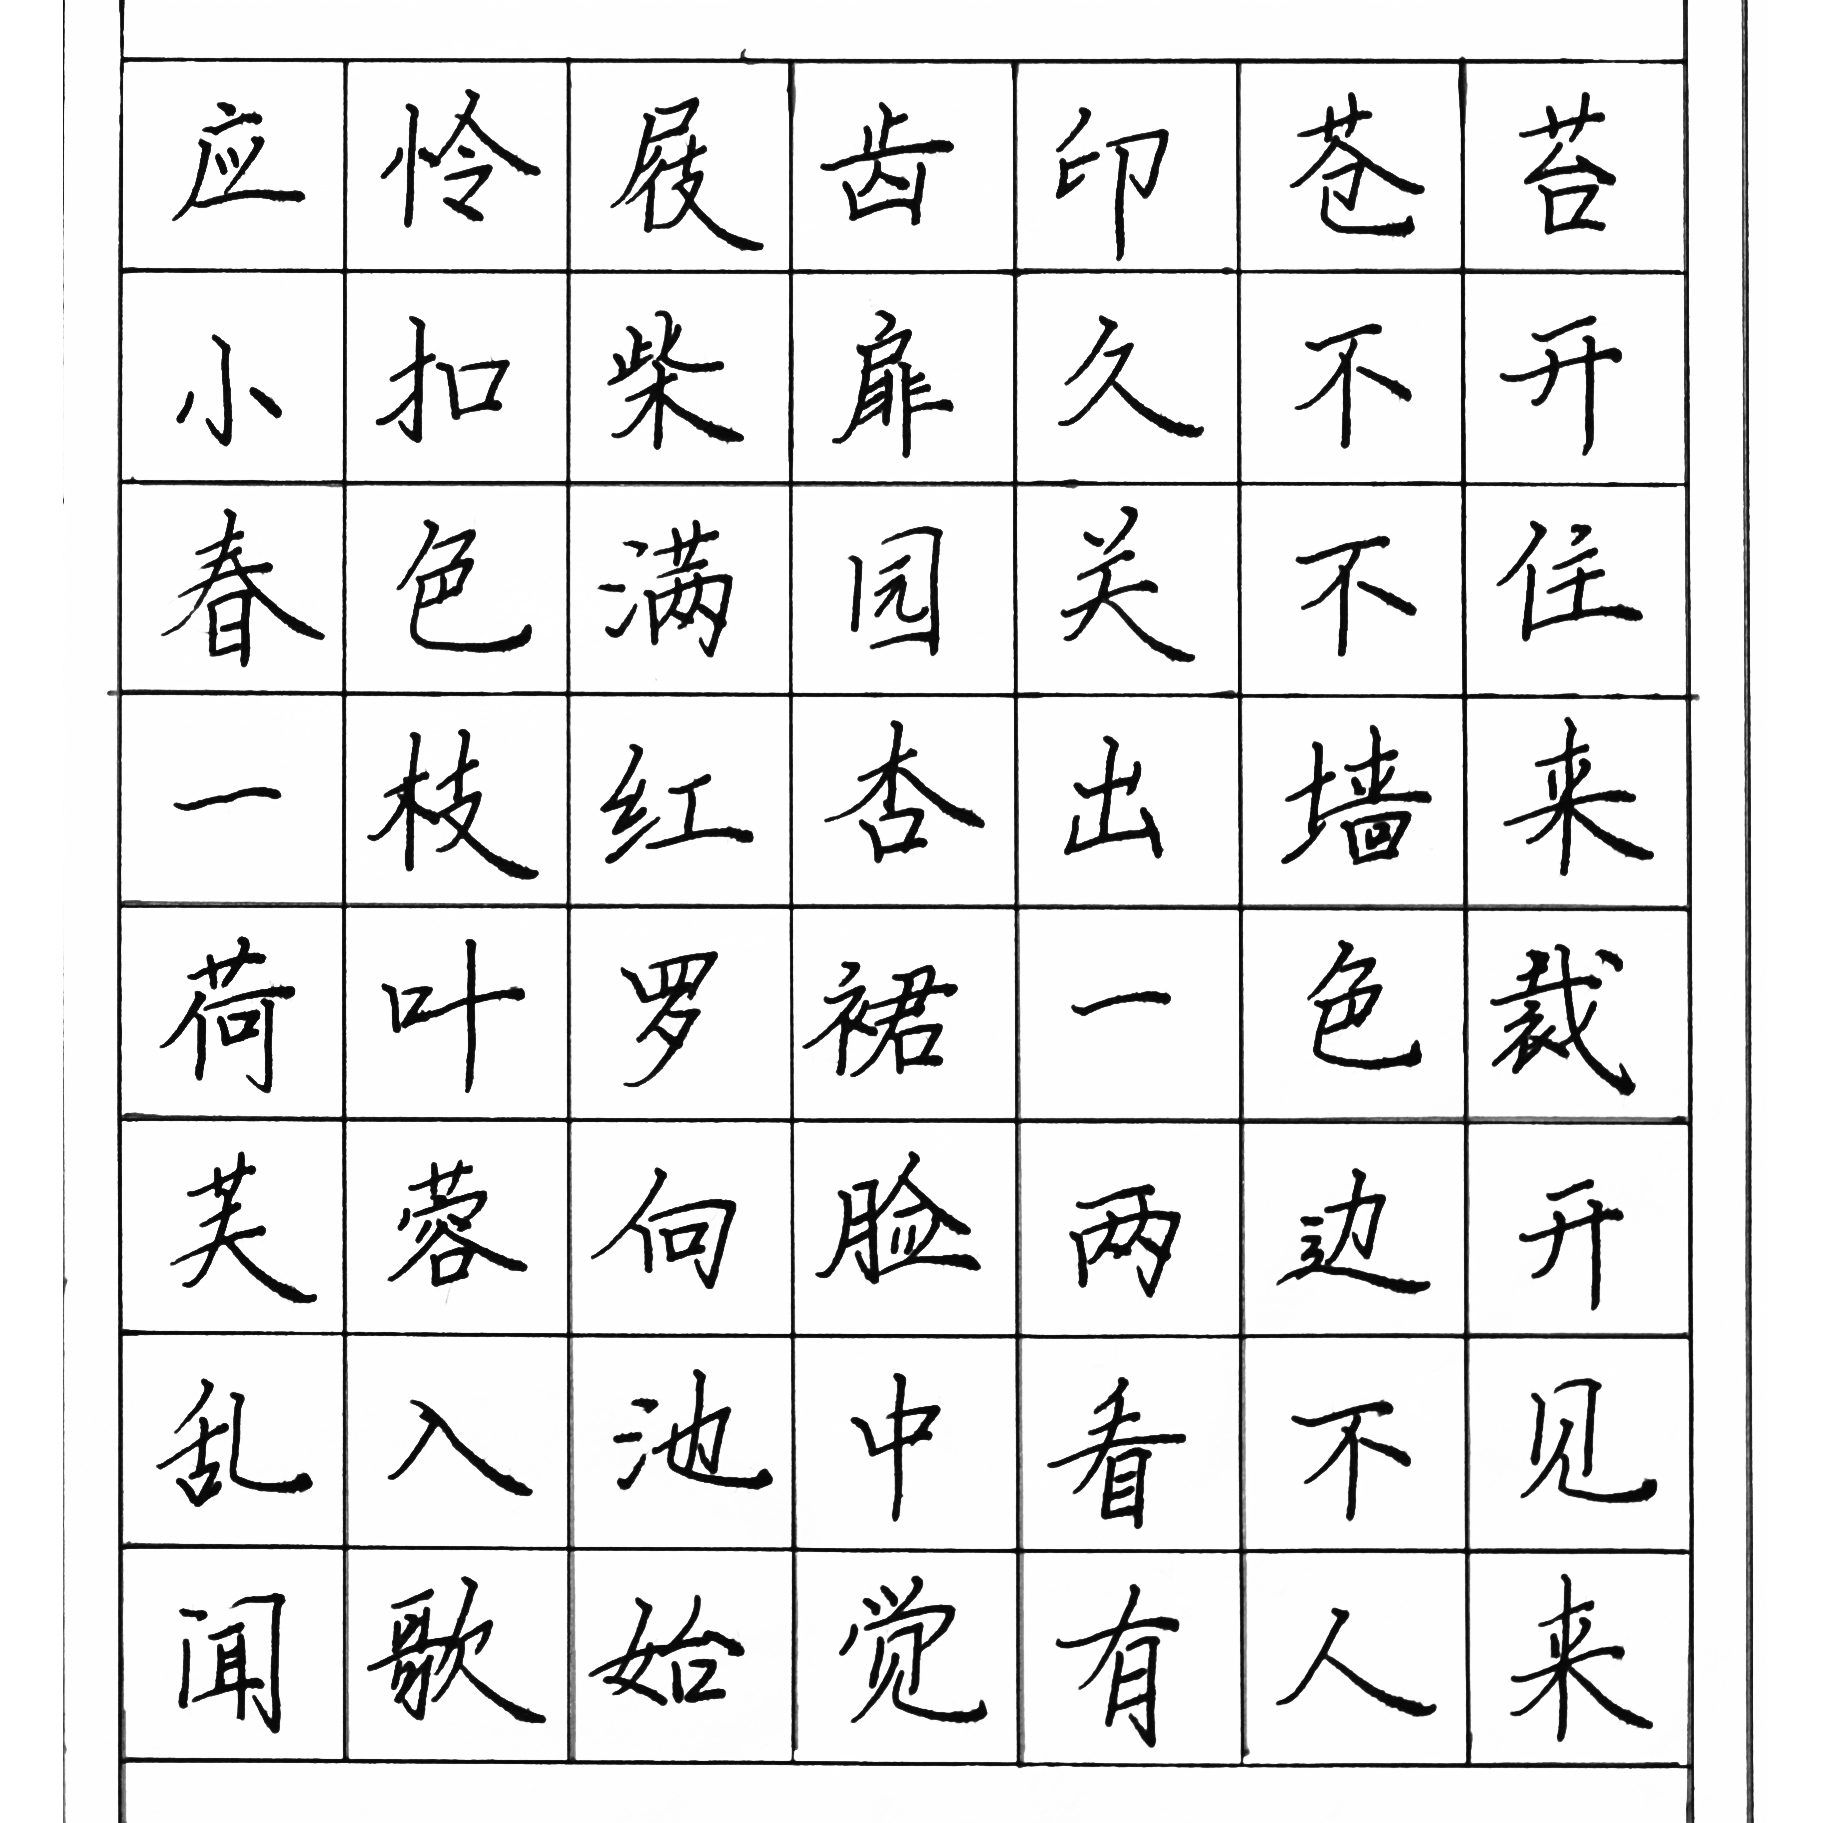 应怜屐齿印苍苔
小扣柴扉久不开
春色满园关不住
一枝红杏出墙来
荷叶罗裙一色裁
芙蓉向脸两边开
乱入池中看不见
闻歌始觉有人来